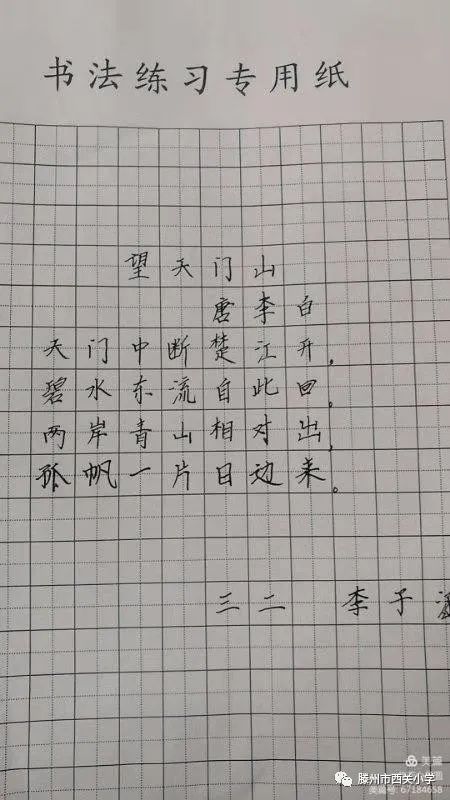 书法练习专用纸
望天门山
唐 李白
天门中断楚江开，
碧水东流自此回。
两岸青山相对出，
孤帆一片日边来。
三二 李子
美篇
滕州市西关小学
美篇号: 67184658